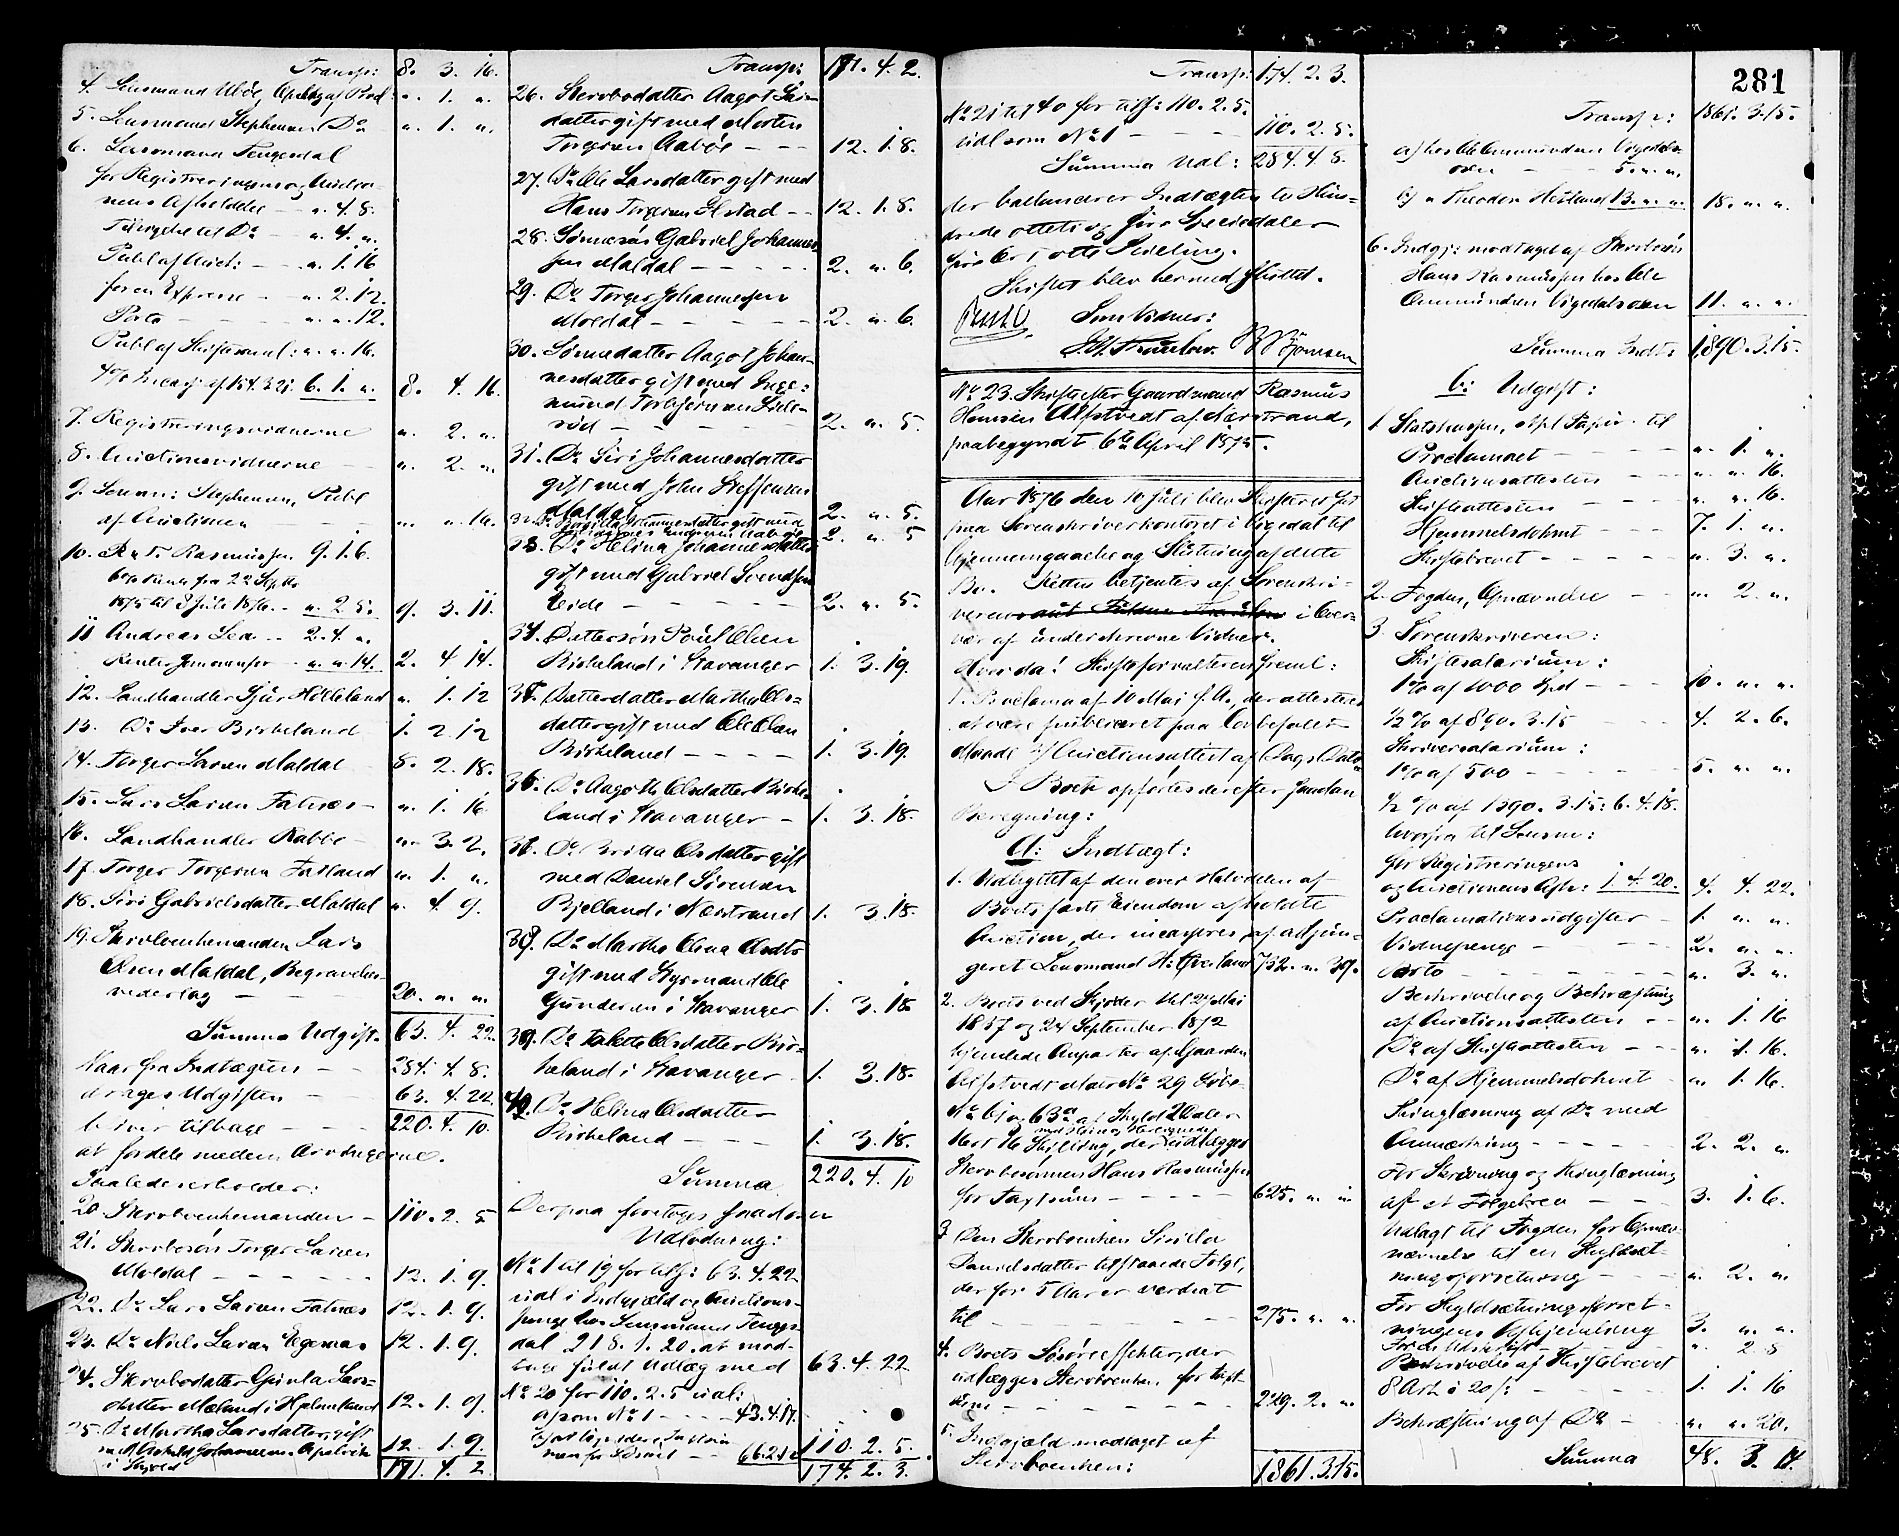 Transp: 8. 3. 16.
4. Lensmand Ubøe, Opslag af Procl: „. 1. „.
5. Lensmand Stephensen Do „. 1. „.
6. Lensmand Tengesdal
for Registreringens og Auctio-
nens Afholdelse — „. 4. 8.
Tilsigelse til Do — „. 4. „.
Publ af Auct: — „. 1. 16
for en Expresse — „. 2. 12.
Porto — „. „. 12.
Publ af Skiftesaml: „. „. 16.
4% Incass af 154.3.21. 6. 1. „. 8. 4. 16.
7. Registreringsvidnerne „. 2. „.
8. Auctionsvidnerne „. 2. „.
9. Lensm: Stephensen, Publ
af Auctionen „. „. 16.
10. Rasmussen 9. 1. 6.
6% Rente fra 22 Septbr
1875 til 8 Juli 1876. — „. 2. 5. 9. 3. 11.
11 Andreas Lea — 2. 4. „.
Renter — „. „. 14. 2. 4 14.
12. Landhandler Sjur Helleland „. 1. 12
13. Do Iver Birkeland 1. 2. 12
14. Torger Larsen Maldal 8. 2. 18.
15. Lars Larsen Fatnæs — „. 1. 16.
16. Landhandler Rabbe — „. 3. 2.
17. Torger Torgersen Fatland „. 1. „.
18. Siri Gabrielsdatter Maldal „. 4. 9.
19. Stervboenkemanden Lars
Olsen Maldal, Begravelses-
vederlag — 20. „. „.
Summa Udgift. 63. 4. 22.
Naar fra Indtægten — 284. 4. 8.
drages Udgiften — 63. 4. 22
bliver tilbage — 220. 4. 10.
at fordele mellem Arvingerne.
Saaledes erholder:
20. Stervboenkemanden — 110. 2. 5
21. Stervbosøn Torger Larsen
Maldal — 12. 1. 9.
22. Do Lars Larsen Fatnæs 12. 1. 9.
23. Do Niels Larsen Egenæs 12. 1. 9.
24. Stervbodatter Gunla Lars-
datter Mæland i Hjelmeland 12. 1. 9.
25. Do Martha Larsdatter gift
med Johannesen Apeltvik
i 12. 1. 9.
171. 4. 2
Transp: 171. 4. 2.
26. Stervbodatter Aagot Lars-
datter gift med Morten
Torgersen Aabøe — 12. 1. 8.
27. Do Ole Larsdatter gift med
Hans Torgersen Ilstad — 12. 1. 8.
28. Sønnesøn Gabriel Johannes-
sen Maldal — 2. „. 6.
29. Do Torger Johannessen
Maldal — 2. „. 6.
30. Sønnedatter Aagot Johan-
nesdatter gift med Inge-
mund Torbjørnsen
— 2. „. 5.
31. Do Siri Johannesdatter
gift med John Steffensen
Maldal 2. „. 5.
32. Do Johannesdatter gift med
2. „. 5
33. Do Helina Johannesdatter
gift med Gabriel Svendsen
Leide — 2. „. 5.
34. Dattersøn Poul Olsen
Birkeland i Stavanger 1. 3. 19.
35. Datterdatter Martha Ols-
datter gift med Ole Olsen
Birkeland — 1. 3. 19.
36. Do Aagothe Olsdatter Birke-
land i Stavanger — 1. 3. 18.
37. Do Britta Olsdatter gift
med Daniel Sørensen
Bjelland i Nærstrand 1. 3. 18.
38. Do Martha Elena Olsdtr
gift med Styrmand Ole
Gundersen i Stavanger 1. 3. 18
39. Do Olsdatter Bir-
keland i Stavanger 1. 3. 18.
40. Do Helina Olsdatter
Birkeland — 1. 3. 18.
Summa 220. 4. 10
Derpaa foretoges saadan
Udlodning:
No 1 til 19 for tilsf: 63. 4. 22
udl i Indgjæld og Auctions-
penge hos Lensmand Tenges-
dal 218. 1. 20. at mod-
tage fuldt Udlæg med 63. 4. 22
No 20 for 110. 2. 5 udl:
a) som No 1 — 43. 4. 17.
66. 2.
110. 2. 5.
174. 2. 3.
Transp: 174. 2. 3.
No 21 til 40 for tilsf: 110. 2. 5.
udl som No 1 — 110. 2. 5.
Summa Udl: 284. 4. 8.
der balancerer Indtægten to Hun-
drede otteti og fire Speciedaler
fire Ort otte Skilling.
Skiftet blev hermed sluttet.
Som Vidner:
No 23. Skifte efter Gaardmand Rasmus
Hansen Alfstvedt af Nærstrand,
paabegyndt 6te April 1875.
Aar 1876 den 10 Juli blev Skifteret sat
paa Sorenskriverkontoret i Vigedal til
Gjennemgaaelse og Slutning af dette
Bo. Retten betjentes af Sorenskri-
veren i Over-
vær af underskrevne Vidner.
Hvorda! Skifteforvalteren freml:
1. Proclama af 10 Mai f. A., der attesteres
at være publiceret paa lovbefalet
Maade 2) Auctionsattest af Dags Dato
I Boet opførtes derefter saadan
Beregning:
A: Indtægt:
1. Udbyttet af den over Halvdelen af
Boets faste Eiendom afholdte
Auction, der incasseres af adjun-
geret Lensmand H: Øverland 732. „. 39.
2. Boets ved Skjøder til 27 Mai
1857 og 24 September 1872
hjemlede Anparter af Gaarden
Alfstvedt Matr No 29 Løbe-
No 61 og 63a at Skyld 2 Daler
1 Ort 16 Skilling, der udlægges
Stervbosønnen Hans Rasmussen
for Taxtsum — 625. „. „.
3 Den Stervboenken Siselia
Danielsdatter tilstaaede Folge,
der for 5 Aar er værdsat
til — 275. „. „.
4. Boets Løsøreeffekter, der
udlægges Stervboenken for Taxt-
sum — 229. 2. „.
5. Indgjæld modtaget af
Stervboenken:
1861. 3. 15.
281
Transp: 1861. 3. 15.
a) hos Ole Ommundsen Vigedals-
osen — 5. „. „.
b) „ Theodor Hetland 13. „. „. 18. „. „.
6. Indgj: modtaget af Stervbosøn
Hans Rasmussen hos Ole
Ommundsen Vigedalsosen 11. „. „.
Summa Indtr 1890. 3. 15.
b: Udgift:
1 Statskassen, stpl Papir til
Proclamaet — „. 1. „.
Auctionsattesten — „. „. 16.
Skifteattesten — „. „. 16.
Hjemmelsdokmt — 7. 1. „.
Skiftebrevet — „. 3. „.
2. Fogden, Opnævnelse — „. 2. „.
3. Sorenskriveren:
Skiftesalarium:
1% af 1000 Spd — 10. „. „.
1/2% af 890. 3. 15 — 4. 2. 6.
Skriversalarium:
1% af 500 — 5. „. „.
1/2 % af 1390. 3. 15: 6. 4. 18.
hvorfra til Lensm:
for Registreringens
og Auctionens Afh: 1. 4. 20. 4. 4. 22.
Proclamationsudgifter — 1. „. „.
Vidnepenge — 2. „. „.
Porto — „. 3. „.
Beskrivelse og Bekræftning
af Auctionsattesten — „. 1. 16
Do af Skifteattesten — „. 1. 16.
Do af Hjemmelsdokmt — „. 1. 16.
Thinglæsning af Do med
Anmærkning — 2. 2. „.
For Skrivning og Thinglæsning
af et Folgebrev — 3. 1. 6.
Udlagt til Fogden for Opnæv-
nævnelse til en Skyldsæt-
ningsforretning — „. 2. „.
For Skyldsætningsforret-
ningens Afhjemling 3. „. „.
„. 2. 8
Beskrivelse af Skiftebrevet
8 Ark à 20 ß: — 1. 1. 16
Bekræftning af Do — „. „. 20.
Summa 48. 3. 14.